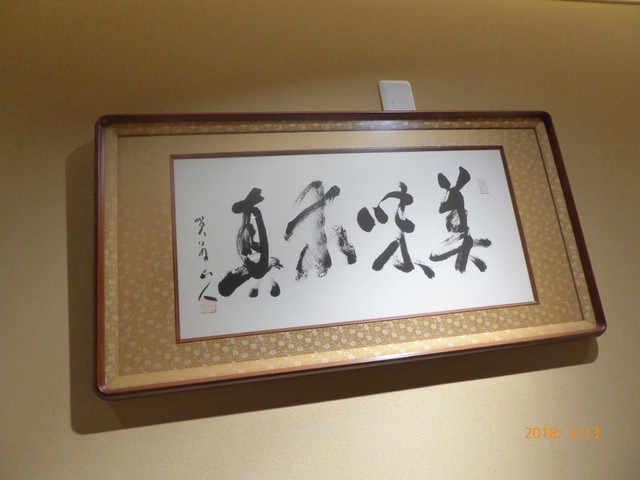 美味求真
山人
2018/ 3/13